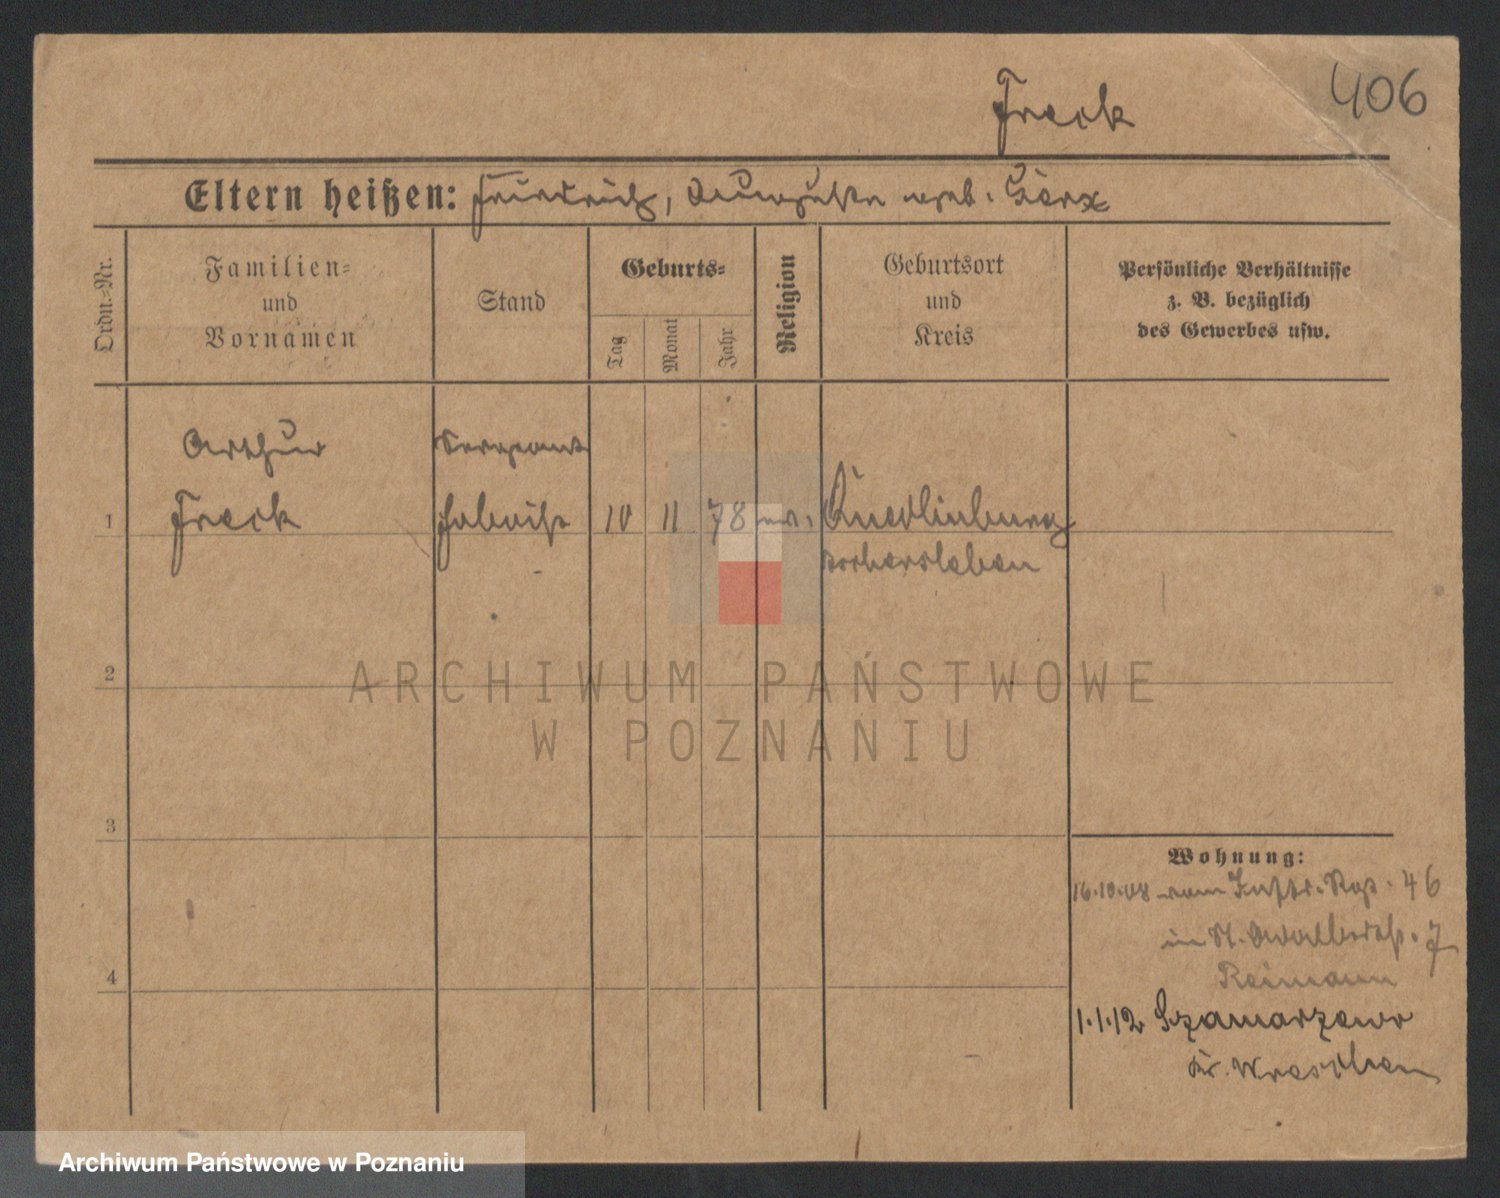 406
Freck
Eltern heißen: Friedrich, Auguste geb.
Ordn.-Nr.
Familien-
und
Vornamen
Stand
Geburts-
Tag
Monat
Jahr
Religion
Geburtsort
und
Kreis
Persönliche Verhältnisse
z. B. bezüglich
des Gewerbes usw.
Arthur
Sergeant
1
Freck
10
11
78
ev.
Quedlinburg
2
ARCHIWUM PAŃSTWOWE
W POZNANIU
3
Wohnung:
16.10.08 vom Inftr. Rgt. 46
in St. Adalbertstr. 7
4
Reimann
1.1.12 Szamarzewo
Kr. Wreschen
Archiwum Państwowe w Poznaniu